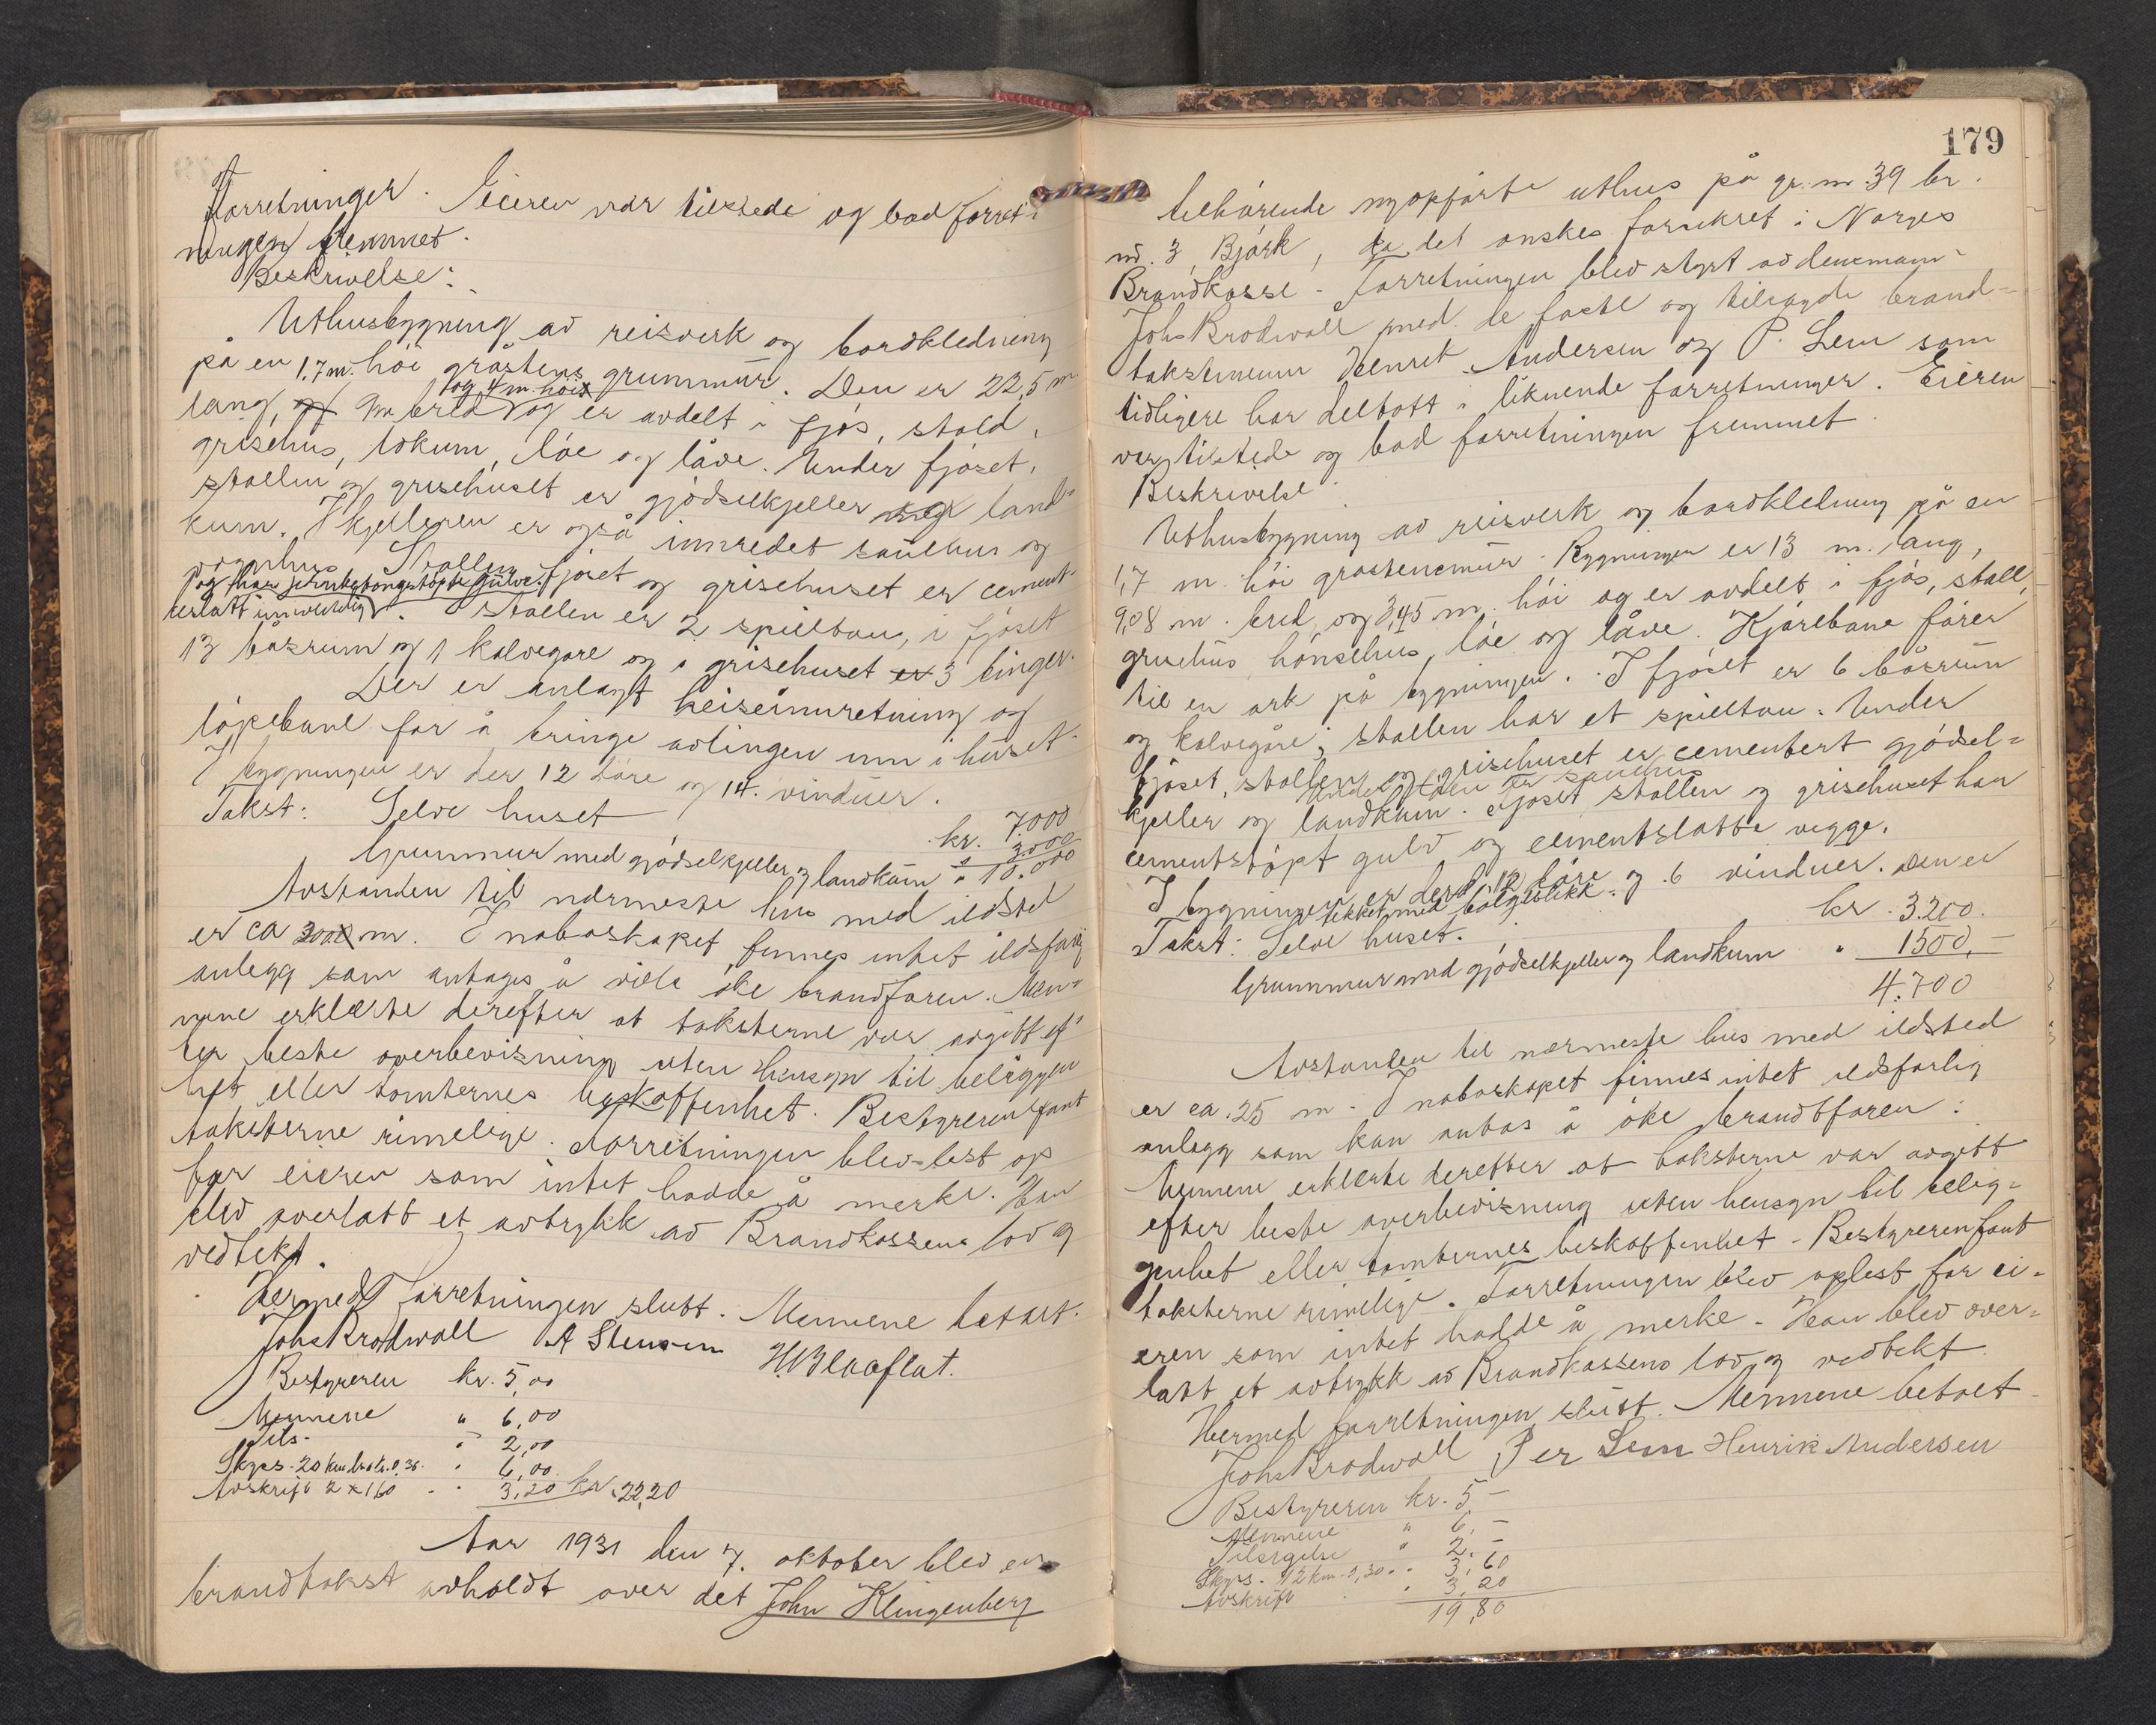 Forretninger. Eieren var tilstede og bad forret-
ningen fremmet.
Beskrivelse:
Uthusbygning av reisverk og bordkledning
på en 1,7 m. höi gråstens grunnmur. Den er 22,5 m
lang, 9 m bred og 4 m. höi og er avdelt i fjös, stald,
grisehus, lokum, löe og låve. Under fjöset,
stallen og grisehuset er gjödselkjeller land-
kum. I kjelleren er også innredet sauehus og
vognhus. Stallen, fjöset og grisehuset er cement-
og har jernbetongstöpte gulve.
beslått innvendig. I stallen er 2 spilltau, i fjöset
13 båsrum og 1 kalvegare og i grisehuset er 3 binger.
Der er anlagt heiseinnretning og
löpebane for å bringe avlingen inn i huset.
I bygningen er der 12 döre og 14 vinduer.
Takst: Selve huset kr. 7.000
Grunnmur med gjödselkjeller og landkum " 3.000
" 10.000
Avstanden til nærmeste hus med ildsted
er ca m. I naboskapet finnes intet ildsfarlig
anlegg som antages å ville öke brandfaren. Men-
nene erklærte derefter at taksterne var avgitt ef-
ter beste overbevisning uten hensyn til beliggen
het eller tomternes beskaffenhet. Bestyreren fant
taksterne rimelige. Forretningen blev lest op
for eieren som intet hadde å merke. Han
blev overlatt et avtrykk av Brandkassens lov og
vedtekt.
Hermed forretningen slutt. Mennene betalt.
Johs Brodwall A Stensen H. Blaaflat.
Bestyreren kr. 5,00
Mennene " 6,00
Tils. " 2,00
Skyss. 20 km " 6,00
Avskrift 2 x 1 60 " 3,20 kr. 22,20
Aar 1931 den 7. oktober blev en
brandtakst avholdt over det John Klingenberg
179
tilhörende nyopförte uthus på gr. nr. 39 br.
nr. 3, Björk, da det önskes forsikret i Norges
Brandkasse. Forretningen blev styrt av lensmann
Johs Brodwall med de faste og tilsagde brand-
takstmenn Henrik Andersen og P. Lem som
tidligere har deltatt i liknende forretninger. Eieren
var tilstede og bad forretningen fremmet.
Beskrivelse:
Uthusbygning av reisverk og bordkledning på en
1,7 m. höi gråstensmur. Bygningen er 13 m. lang,
9,08 m. bred og 3,45 m. höi og er avdelt i fjös, stall,
grisehus, hönsehus, löe og låve. Kjörebane förer
til en ark på bygningen. I fjöset er 6 båsrum
og kalvegåre; stallen har et spilltau. Under
fjöset, stallen og grisehuset er cementert gjödsel-
Under löen er sauehus
kjeller og landkum. Fjöset, stallen og grisehuset har
cementstöpt gulv og cementslatte vegge.
I bygningen er der 12 döre og 6 vinduer. Den er
tekket med bölgeblikk.
Takst: Selve huset. kr. 3.200.
Grunnmur med gjödselkjeller og landkum " 1500,-
4.700
Avstanden til nærmeste hus med ildsted
er ca. 25 m. I naboskapet finnes intet ildsfarlig
anlegg som kan antas å öke brandtfaren.
Mennene erklærte derefter at taksterne var avgitt
efter beste overbevisning uten hensyn til belig-
genhet eller tomternes beskaffenhet. Bestyreren fant
taksterne rimelige. Forretningen blev oplest for ei-
eren som intet hadde å merke. Han blev over-
latt et avtrykk av Brandkassens lov og vedtekt.
Hermed forretningen slutt. Mennene betalt.
Johs Brodwall Per Lem Henrik Andersen
Bestyreren kr. 5,-
Mennene " 6,-
Tilsigelse " 2,-
Skyss. 12 km 0,30 " 3,60
Avskrift " 3,20
19,80